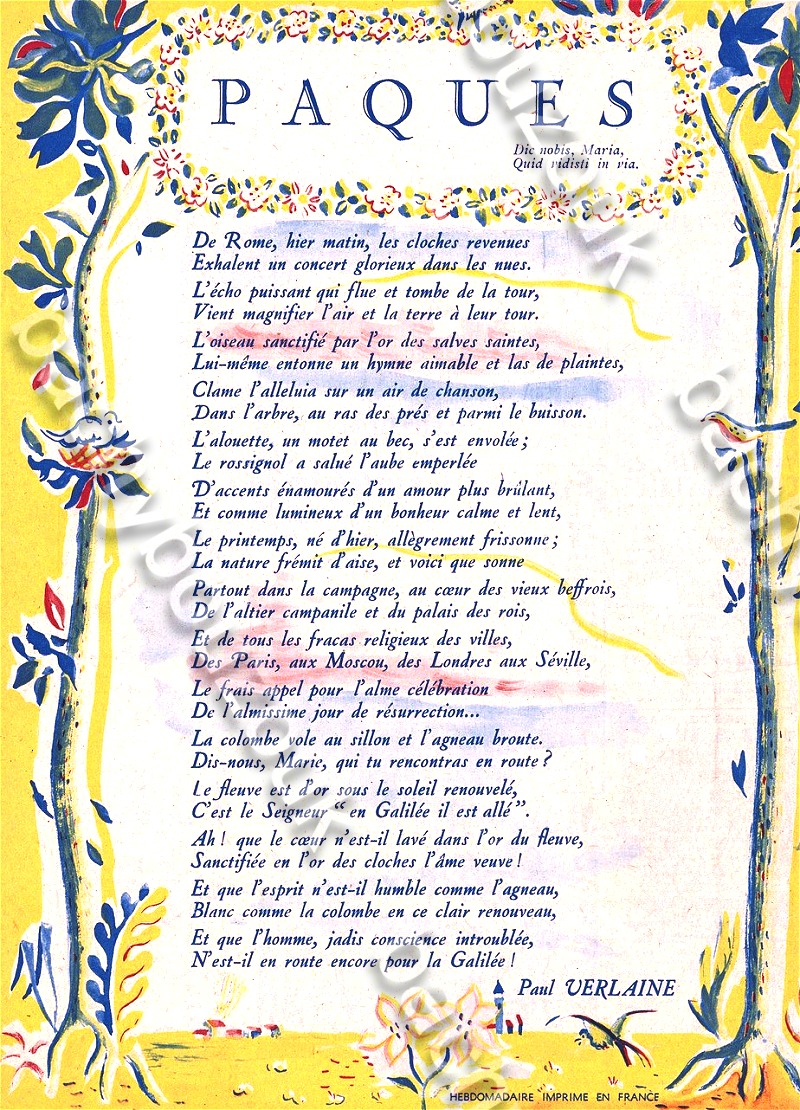 PAQUES
Dic nobis, Maria,
Quid vidisti in via.
De Rome, hier matin, les cloches revenues
Exhalent un concert glorieux dans les nues.
L'écho puissant qui flue et tombe de la tour,
Vient magnifier l'air et la terre à leur tour.
L'oiseau sanctifié par l'or des salves saintes,
Lui-même entonne un hymne aimable et las de plaintes,
Clame l'alleluia sur un air de chanson,
Dans l'arbre, au ras des prés et parmi le buisson.
L'alouette, un motet au bec, s'est envolée ;
Le rossignol a salué l'aube emperlée
D'accents énamourés d'un amour plus brûlant,
Et comme lumineux d'un bonheur calme et lent,
Le printemps, né d'hier, allègrement frissonne ;
La nature frémit d'aise, et voici que sonne
Partout dans la campagne, au cœur des vieux beffrois,
De l'altier campanile et du palais des rois,
Et de tous les fracas religieux des villes,
Des Paris, aux Moscou, des Londres aux Séville,
Le frais appel pour l'alme célébration
De l'almissime jour de résurrection...
La colombe vole au sillon et l'agneau broute.
Dis-nous, Marie, qui tu rencontras en route ?
Le fleuve est d'or sous le soleil renouvelé,
C'est le Seigneur “ en Galilée il est allé ”.
Ah ! que le cœur n'est-il lavé dans l'or du fleuve,
Sanctifiée en l'or des cloches l'âme veuve !
Et que l'esprit n'est-il humble comme l'agneau,
Blanc comme la colombe en ce clair renouveau,
Et que l'homme, jadis conscience introublée,
N'est-il en route encore pour la Galilée !
Paul VERLAINE
HEBDOMADAIRE IMPRIME EN FRANCE